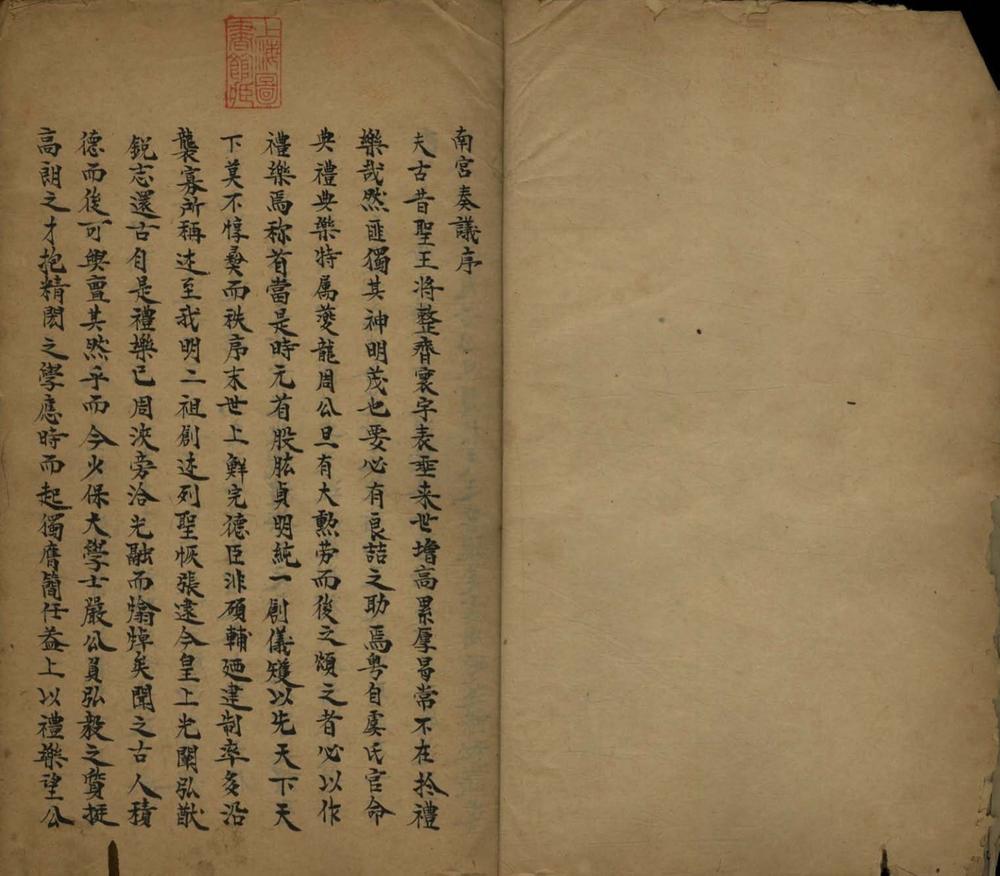 上海圖書館藏
南宮奏議序
夫古昔聖王将整齊寰宇表垂来世増高累厚曷常不在扵禮
樂哉然匪獨其神明茂也要必有良喆之助焉粤自虞氏官命
典禮典樂特属夔龍周公旦有大勲劳而後之頌之者必以作
禮樂焉称首當是時元首股肱貞明純一創儀矱以先天下天
下莫不惇彜而秩序末世上鮮完德臣非碩輔廼建制率多沿
襲寡所稱述至我明二祖創述列聖恢張逮今皇上光闡弘猷
銳志還古自是禮樂已周浹旁洽光融而燴焯矣聞之古人積
德而後可興亶其然乎而今少保大學士嚴公負弘毅之質挺
高朗之才抱精閎之學應時而起獨膺簡任益上以禮樂望公